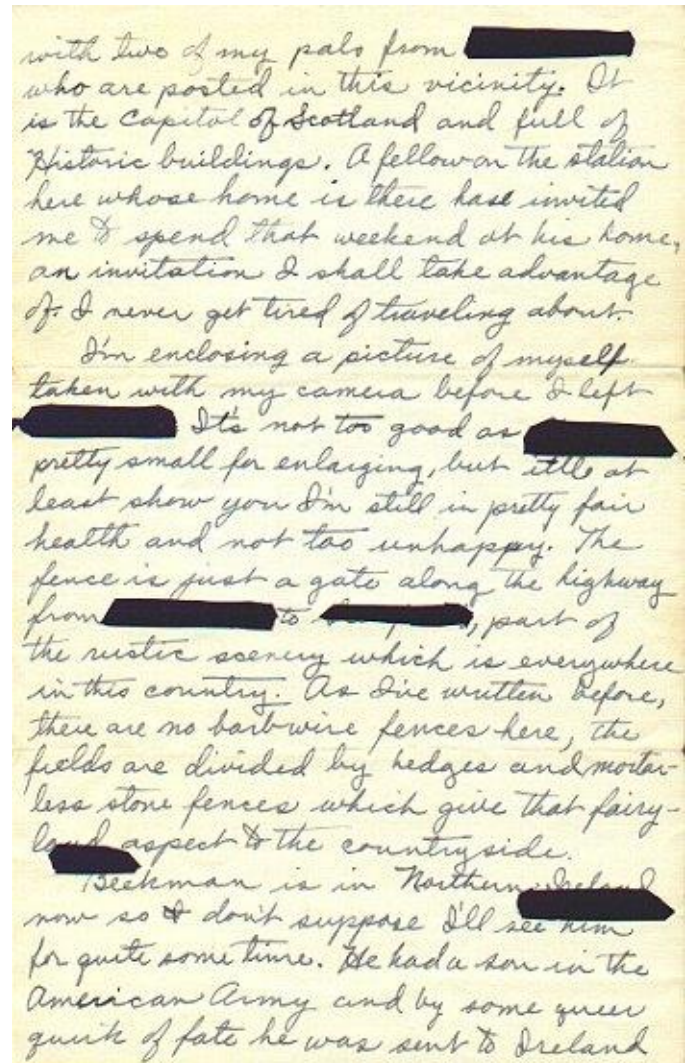 with two of my pals from
who are posted in this vicinity. It
is the Capitol of Scotland and full of
Historic buildings. A fellow on the station
here whose home is there has invited
me to spend that weekend at his home,
an invitation I shall take advantage
of. I never get tired of traveling about.
I'm enclosing a picture of myself
taken with my camera before I left
It's not too good as
pretty small for enlarging, but itll at
least show you I'm still in pretty fair
health and not too unhappy. The
fence is just a gate along the highway
from to , part of
the rustic scenery which is everywhere
in this country. As I've written before,
there are no barbwire fences here, the
fields are divided by hedges and mortar-
less stone fences which give that fairy-
land aspect to the countryside.
Beckman is in Northern Ireland
now so I don't suppose I'll see him
for quite some time. He had a son in the
American Army and by some queer
quirk of fate he was sent to Ireland